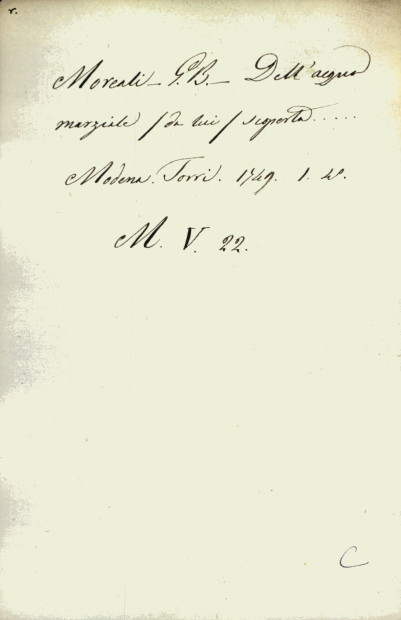 r.
Moreali _ G. B. _ Dell'acqua
marziale / da lui / scoperta.....
Modena. Torri. 1749. 1. 4º.
M. V. 22.
C